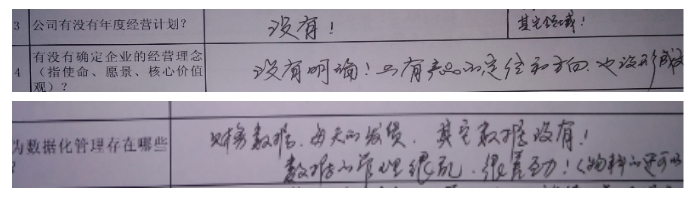 3 公司有没有年度经营计划? 没有!
其它领域!
4 有没有确定企业的经营理念
(指使命、愿景、核心价值
观)?
没有明确!只有产品的定位和方向,也没形成
为数据化管理存在哪些
财务数据,每天的发货,其它数据没有!
数据的管理很乱,很差劲!(物料的还可以